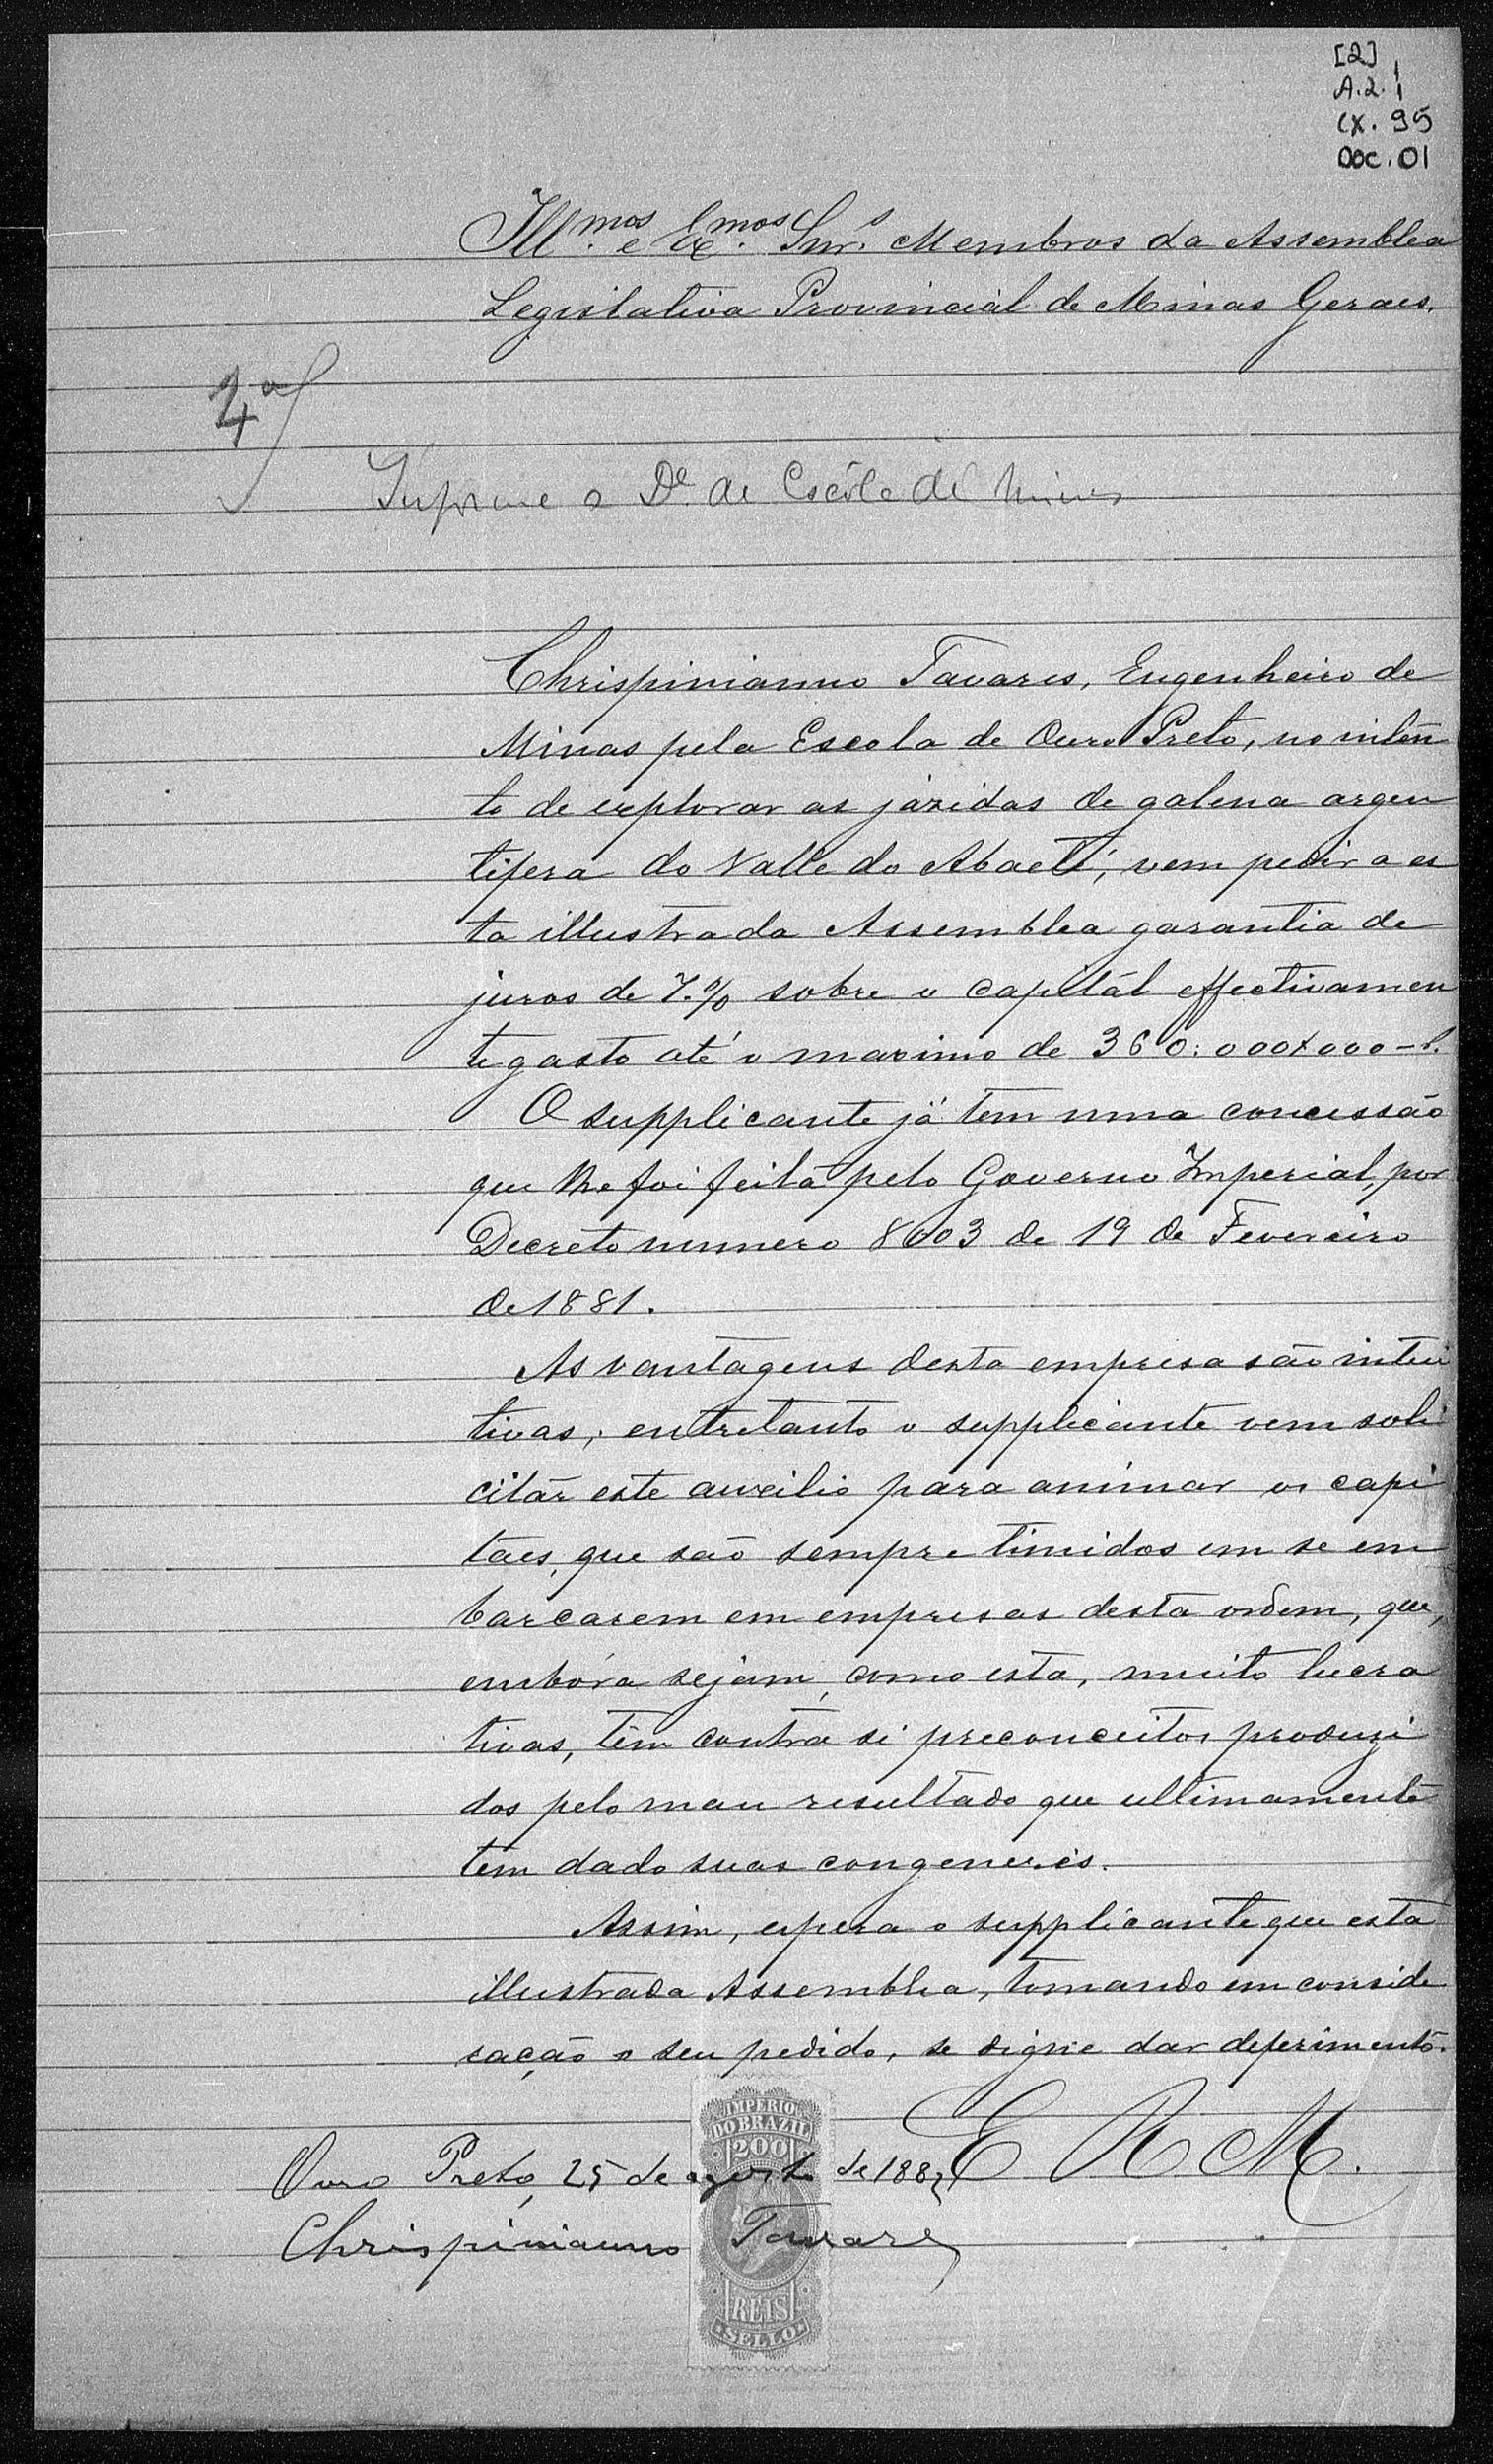 [2]
A.2.1
CX. 95
DOC. 01
Ill.mos e Ex.mos Snr.s Membros da Assemblea
Legislativa Provincial de Minas Geraes.
4ª
Informe o D.e da Escóla de Minas
Chrispinianno Tavares, Engenheiro de
Minas pela Escola de Ouro Preto, no inten
to de explorar as jázidas de galena argen
tifera do Valle do Abaeté, vem pedir a es
ta illustrada Assemblea garantia de
juros de 7.% sobre o capitál effectivamen
te gasto até o maximo de 360:000$000-r.
O supplicante já tem uma concessão
que lhe foi feita pelo Governo Imperial, por
Decreto numero 8003 de 19 de Fevereiro
de 1881.
As vantagens desta empresa são intui
tivas; entretanto o supplicante vem soli
citar este auxilio para animar os capi
táes, que são sempre timidos em se em
barcarem em empresas desta ordem, que,
embóra sejam, como esta, muito lucra
tivas, têm contra si preconceitos produzi
dos pelo mau resultado que ultimamente
têm dado suas congeneres.
Assim, espera o supplicante que esta
illustrada Assemblea, tomando em conside
ração o seu pedido, se digne dar deferimento.
E R M.
IMPERIO
DO BRAZIL
200
Ouro Preto, 25 de agosto de 1882
Chrispinianno Tavares
RÉIS
SELLO